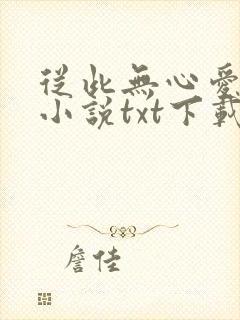 從此無心愛
小說txt下載
詹佳